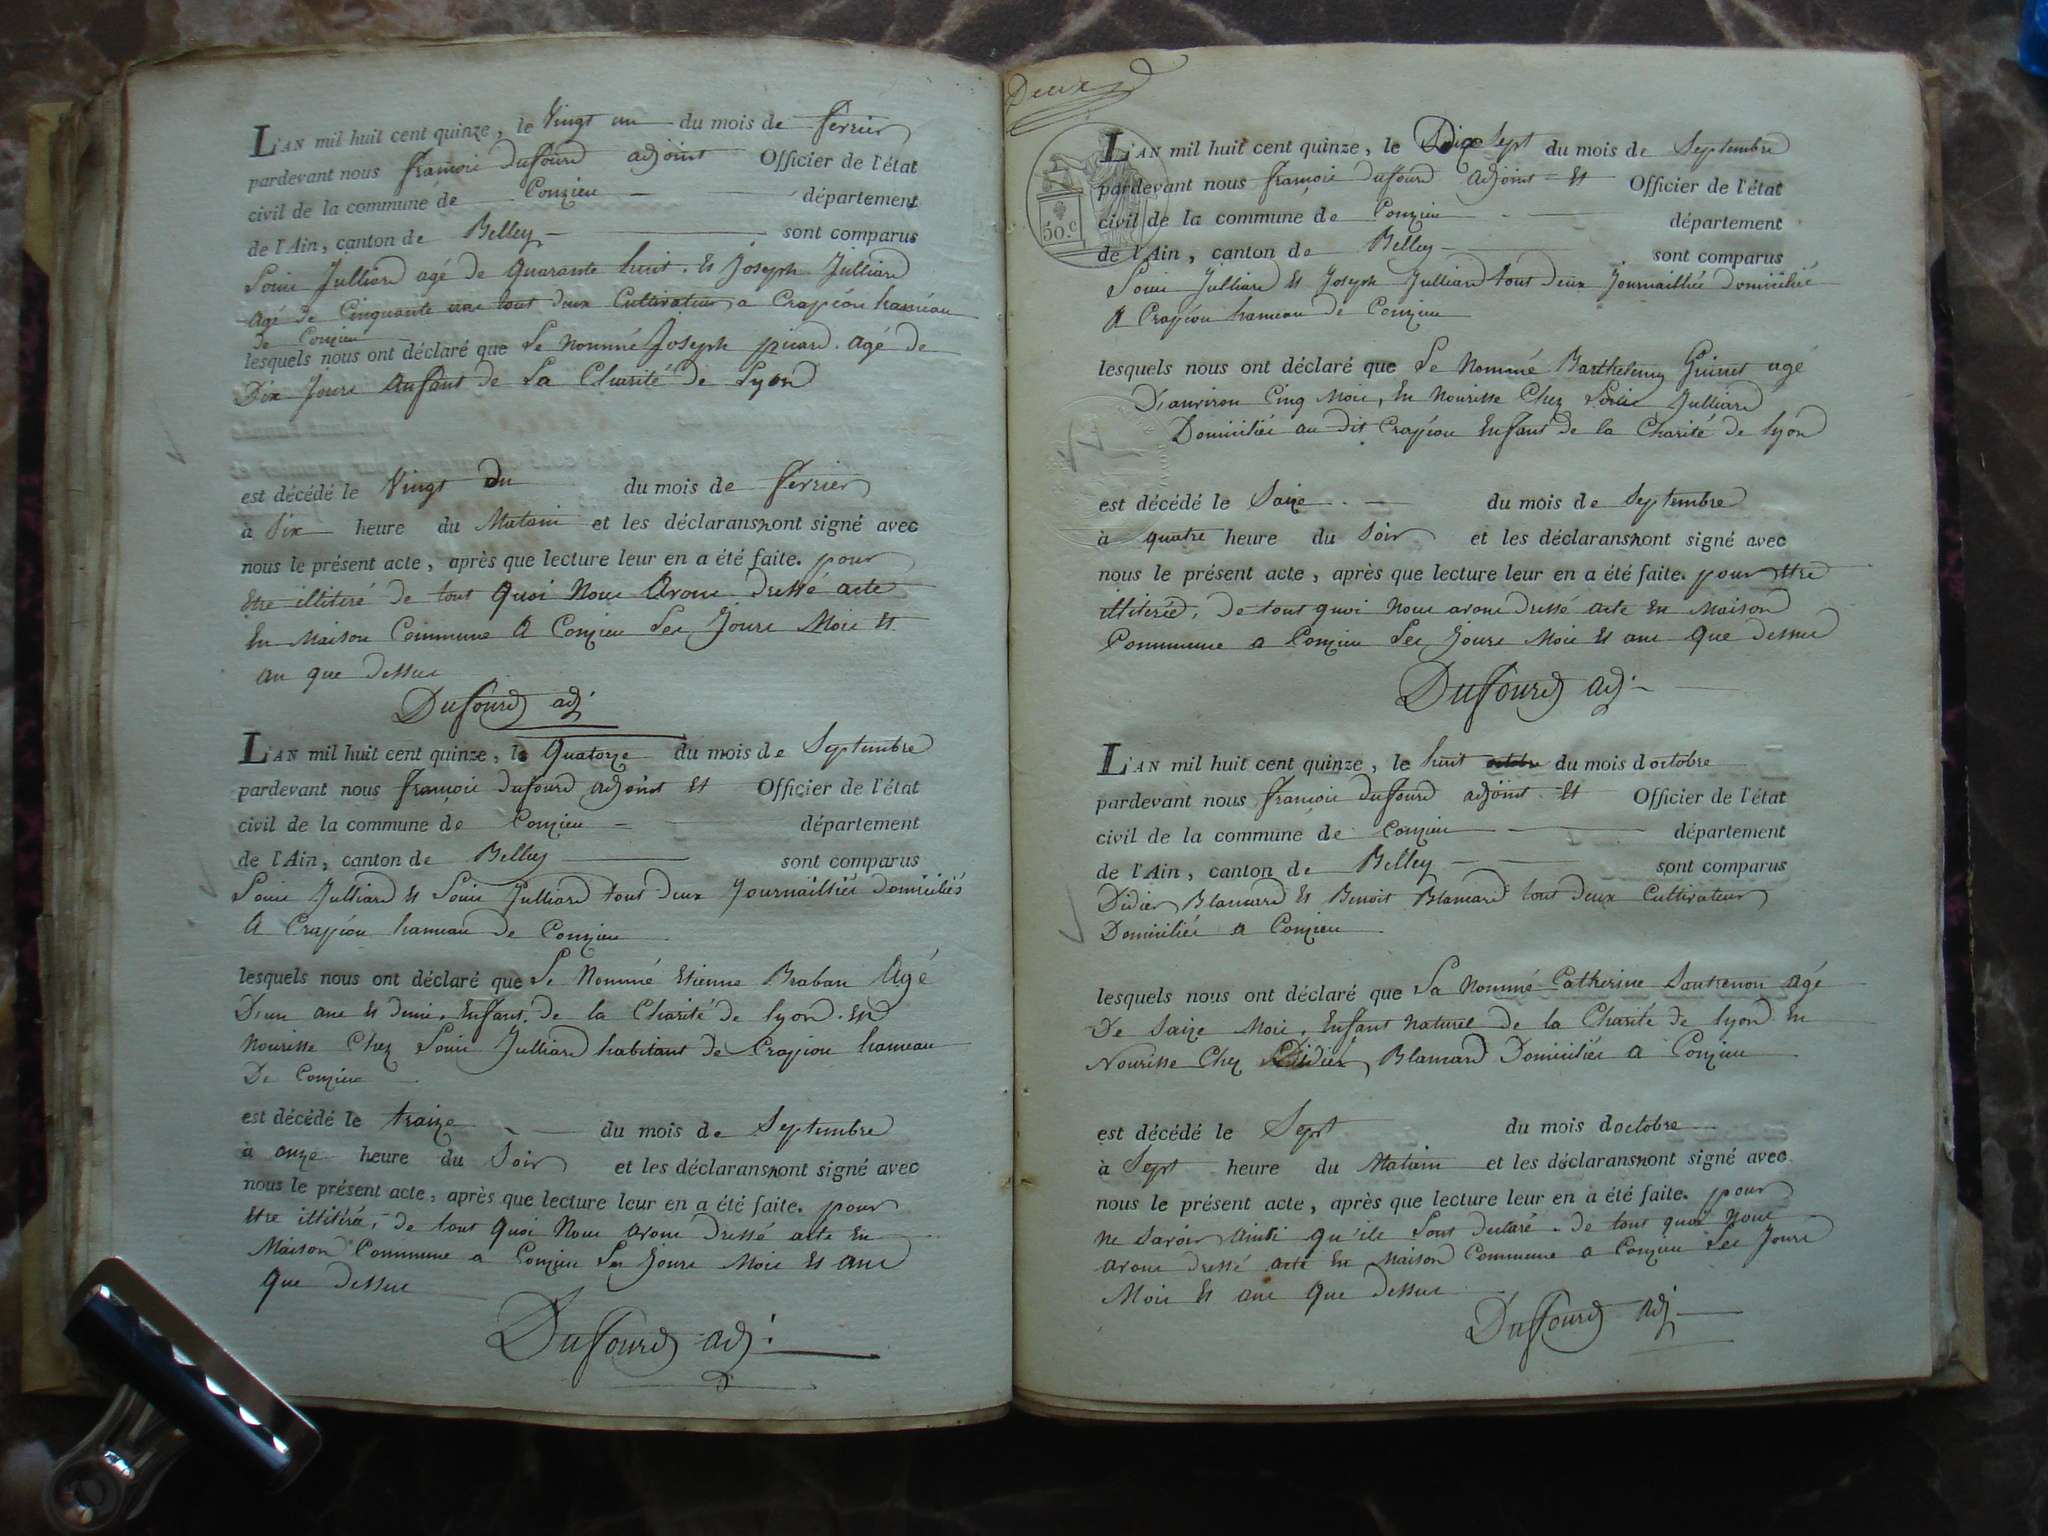 L'AN mil huit cent quinze, le Vingt un du mois de fevrier
pardevant nous francois duffourd adjoint Officier de l'état
civil de la commune de Conzieu département
de l'Ain, canton de Belley sont comparus
Louis Julliard agé de quarante huit. Et Joseph Julliard
agé de Cinquante un tout deux Cultivateur, a Crapéou hameau
de Conzieu
lesquels nous ont déclaré que Le Nommé Joseph picard. agé de
Dix Jours anfant de La Charité de Lyon
est décédé le Vingt du mois de fevrier
à Six heure du Matain et les déclarans nont signé avec
nous le présent acte, après que lecture leur en a été faite. pour
Etre illitiré de tout quoi Nous Avons dressé acte
En Maison Commune A Conzieu Les Jours Mois Et
an que dessus
Duffourd adj.
L'AN mil huit cent quinze, le Quatorze du mois de Septembre
pardevant nous francois duffourd adjoint Et Officier de l'état
civil de la commune de Conzieu département
de l'Ain, canton de Belley sont comparus
Louis Julliard Et Louis Julliard tout deux Journailliés domiciliés
A Crapéou hameau de Conzieu
lesquels nous ont déclaré que Le Nommé Etienne Braban Agé
D'un ans Et demi, Enfant de la Charité de lyon. En
Nourisse Chez Louis Julliard habitant de Crapiou hameau
De Conzieu
est décédé le traize du mois de Septembre
à onze heure du Soir et les déclarans nont signé avec
nous le présent acte, après que lecture leur en a été faite. pour
Etre illitiré, de tout quoi Nous avons dressé acte En
Maison Commune a Conzieu Les Jours Mois Et ans
que dessus
Duffourd adj.
Deux
50.c
L'AN mil huit cent quinze, le Dix Sept du mois de Septembre
pardevant nous francois duffourd adjoint Et Officier de l'état
civil de la commune de Conzieu département
de l'Ain, canton de Belley sont comparus
Louis Julliard Et Joseph Julliard tout deux Journailliés domiciliés
A Crapéou hameau de Conzieu
lesquels nous ont déclaré que Le Nommé Barthelemy Guinet agé
D'anviron Cinq Mois, En Nourisse Chez Louis Julliard
Domiciliés au dit Crapéou Enfant de la Charité de lyon
est décédé le Saize du mois de Septembre
à quatre heure du Soir et les déclarans nont signé avec
nous le présent acte, après que lecture leur en a été faite. pour Etre
illitéréd, de tout quoi Nous avons dressé acte En Maison
Commune a Conzieu Les Jours Mois Et ans que dessus
Duffourd adj.
L'AN mil huit cent quinze, le huit octobre du mois d octobre
pardevant nous francois duffourd adjoint Et Officier de l'état
civil de la commune de Conzieu département
de l'Ain, canton de Belley sont comparus
Didier Blancard Et Benoit Blancard tout deux Cultivateur
Domiciliés a Conzieu
lesquels nous ont déclaré que La Nommé Catherine agé
De Saize Mois, Enfant naturel de la Charité de lyon En
Nourisse Chez Didier Blancard Domiciliés a Conzieu
est décédé le Sept du mois d octobre
à Sept heure du Matain et les déclarans nont signé avec
nous le présent acte, après que lecture leur en a été faite. pour
ne Savoir ainsi qu'ils Sont declaré. de tout quoi Nous
avons dressé acte En Maison Commune a Conzieu Les Jours
Mois Et ans que dessus
Duffourd adj